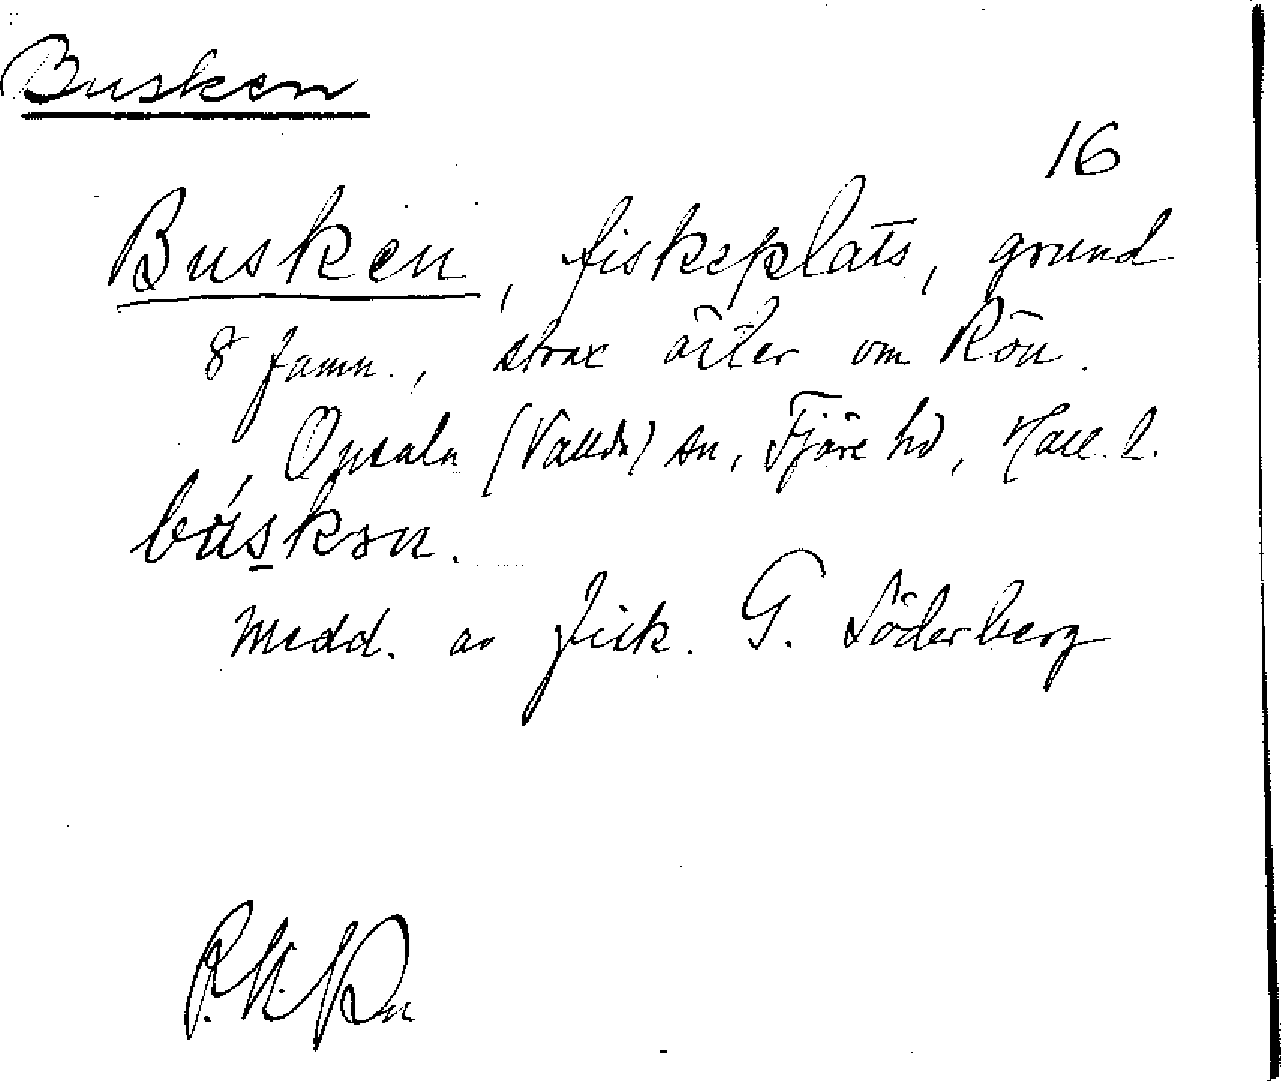 Busken
16
Busken, fiskeplats, grund
8 famn., strax öster om Rön.
Onsala (Vallda) sn, Fjäre hd, Hall. l.
Medd. av fisk. G. Söderberg